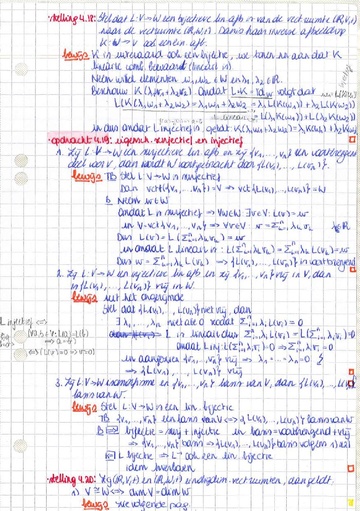 ·stelling 4.18: Stel dat L:V→W een bijectieve lin afb is van de vectruimte (ℝ,V,+)
naar de vectruimte (ℝ,W,+). Dan is haar inverse afbeelding
K:W→V ook een lin afb.
bewijs K is uiteraard ook een bijectie, we tonen nu aan dat K
lineaire comb. bewaard (lineair is).
Neem willek elementen w₁,w₂ ∈ W en λ₁,λ₂ ∈ ℝ.
Beschouw K(λ₁w₁+λ₂w₂). Omdat L∘K = Id_W volgt dat
L(K(λ₁w₁+λ₂w₂)) = λ₁w₁+λ₂w₂ = λ₁L(K(w₁)) + λ₂L(K(w₂))
en dus omdat L injectief is geldt: K(λ₁w₁+λ₂w₂) = λ₁K(w₁)+λ₂K(w₂)
·opdracht 4.19: eigensch. surjectief en injectief
1. Zij L:V→W een surjectieve lin afb en zij {v₁,...,vₙ} een voortbrengend
deel voor V, dan wordt W voortgebracht door {L(v₁),...,L(vₙ)}.
bewijs TB Stel L:V→W is surjectief
Dan vct{v₁,...,vₙ} = V ⇒ vct{L(v₁),...,L(vₙ)} = W
b. Neem w ∈ W
omdat L is surjectief ⇒ ∀w∈W ∃v∈V: L(v) = w
en V = vct{v₁,...,vₙ} ⇒ ∀v∈V v = Σⁿᵢ₌₁ λᵢvᵢ λᵢ∈ℝ
Dus L(v) = L(Σⁿᵢ₌₁ λᵢvᵢ) = w
en omdat L lineair is: L(Σⁿᵢ₌₁ λᵢvᵢ) = Σⁿᵢ₌₁ λᵢL(vᵢ) = w
Dus w = Σⁿᵢ₌₁ λᵢL(vᵢ) ⇒ {L(v₁),...,L(vₙ)} is voortbrengend
2. Zij L:V→W een injectieve lin afb en zij {v₁,...,vₙ} vrij in V, dan
is {L(v₁),...,L(vₙ)} vrij in W.
bewijs uit het ongerijmde
Stel dat {L(v₁),...,L(vₙ)} niet vrij, dan
∃ λ₁,...,λₙ niet alle 0 zodat Σⁿᵢ₌₁ λᵢL(vᵢ) = 0
L injectief ⇔
⇒ {L(v₁),...,L(vₙ)} vrij
3. Zij L:V→W isomorfisme en {v₁,...,vₙ} basis van V, dan {L(v₁),...,L(vₙ)}
basis van W.
bewijs Stel L:V→W is een lin. bijectie
TB {v₁,...,vₙ} een basis van V ⇔ {L(v₁),...,L(vₙ)} basis van W
b. ⇒ bijectie = surj + injectie en basis = voortbrengend + vrij
⇒ {v₁,...,vₙ} basis ⇒ {L(v₁),...,L(vₙ)} basis volgens 1) en 2)
⇐ L bijectie ⇒ L⁻¹ ook een lin. bijectie
idem invullen
·stelling 4.20: Zij (ℝ,V,+) en (ℝ,W,+) eindigdim vectruimten, dan geldt:
1) V ≅ W ⇔ dim V = dim W
bewijs zie volgende pag.